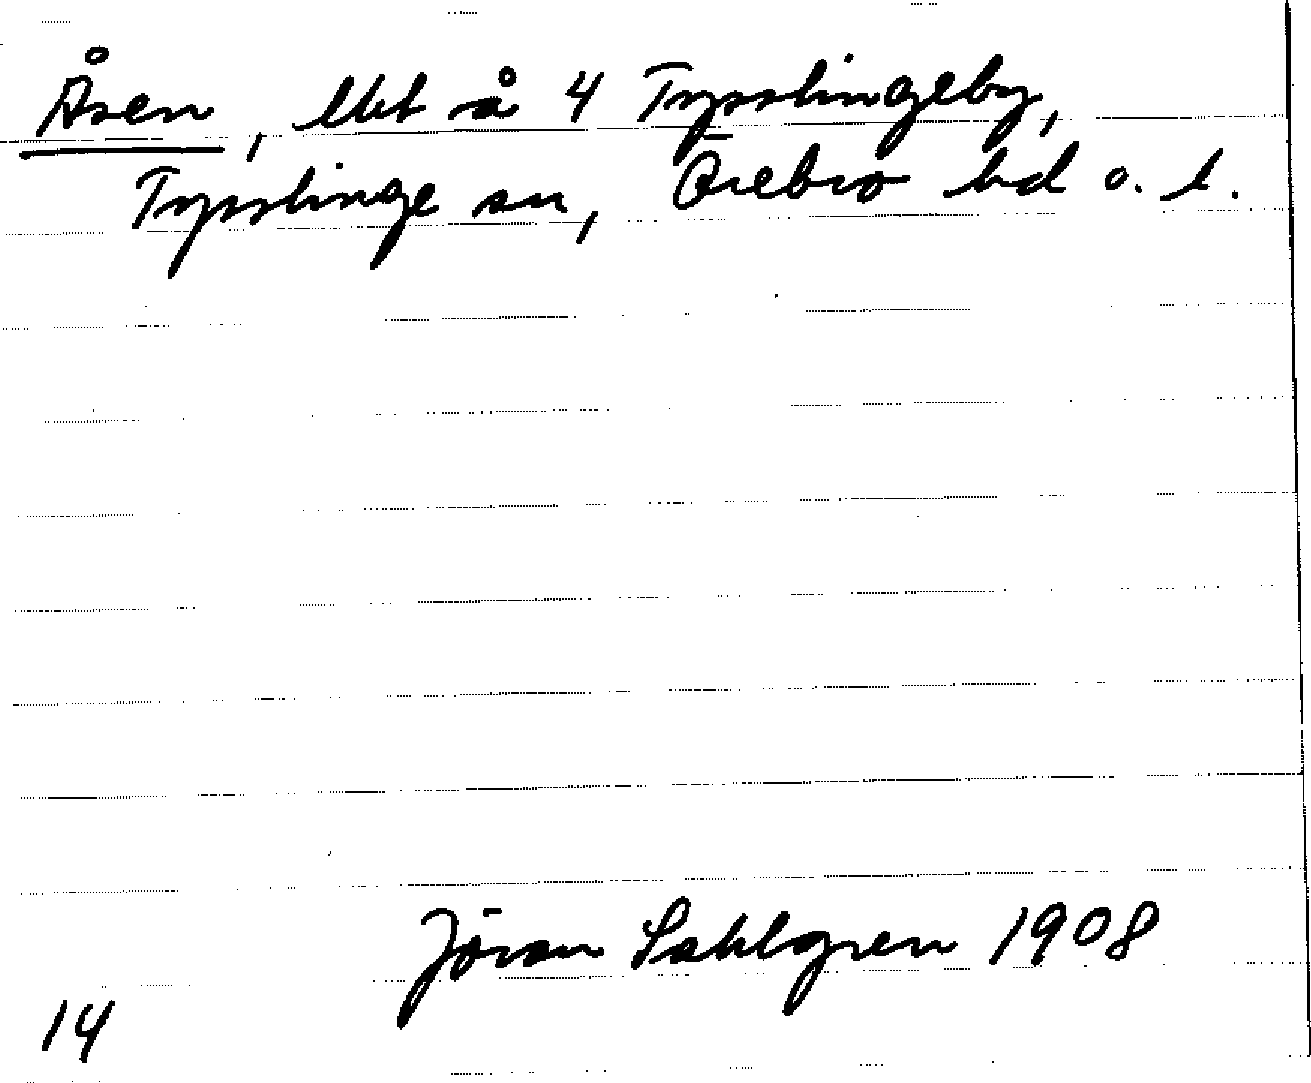 Åsen, lht å 4 Tysslingeby,
Tysslinge sn, Örebro hd o. l.
Jöran Sahlgren 1908
14